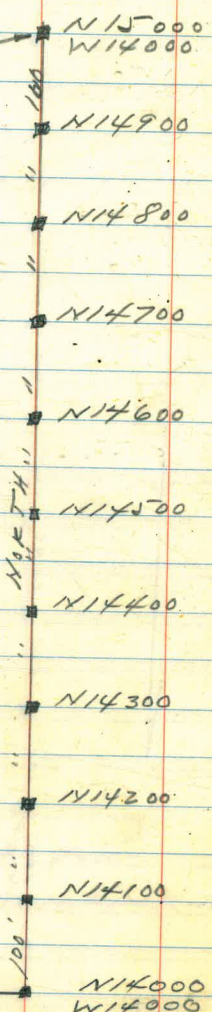 N 15000
W14000
100
N14900
"
N14800
"
N14700
"
N14600
"
N14500
NORTH
"
N14400
"
N14300
"
N14200
"
N14100
100'
N14000
W14000